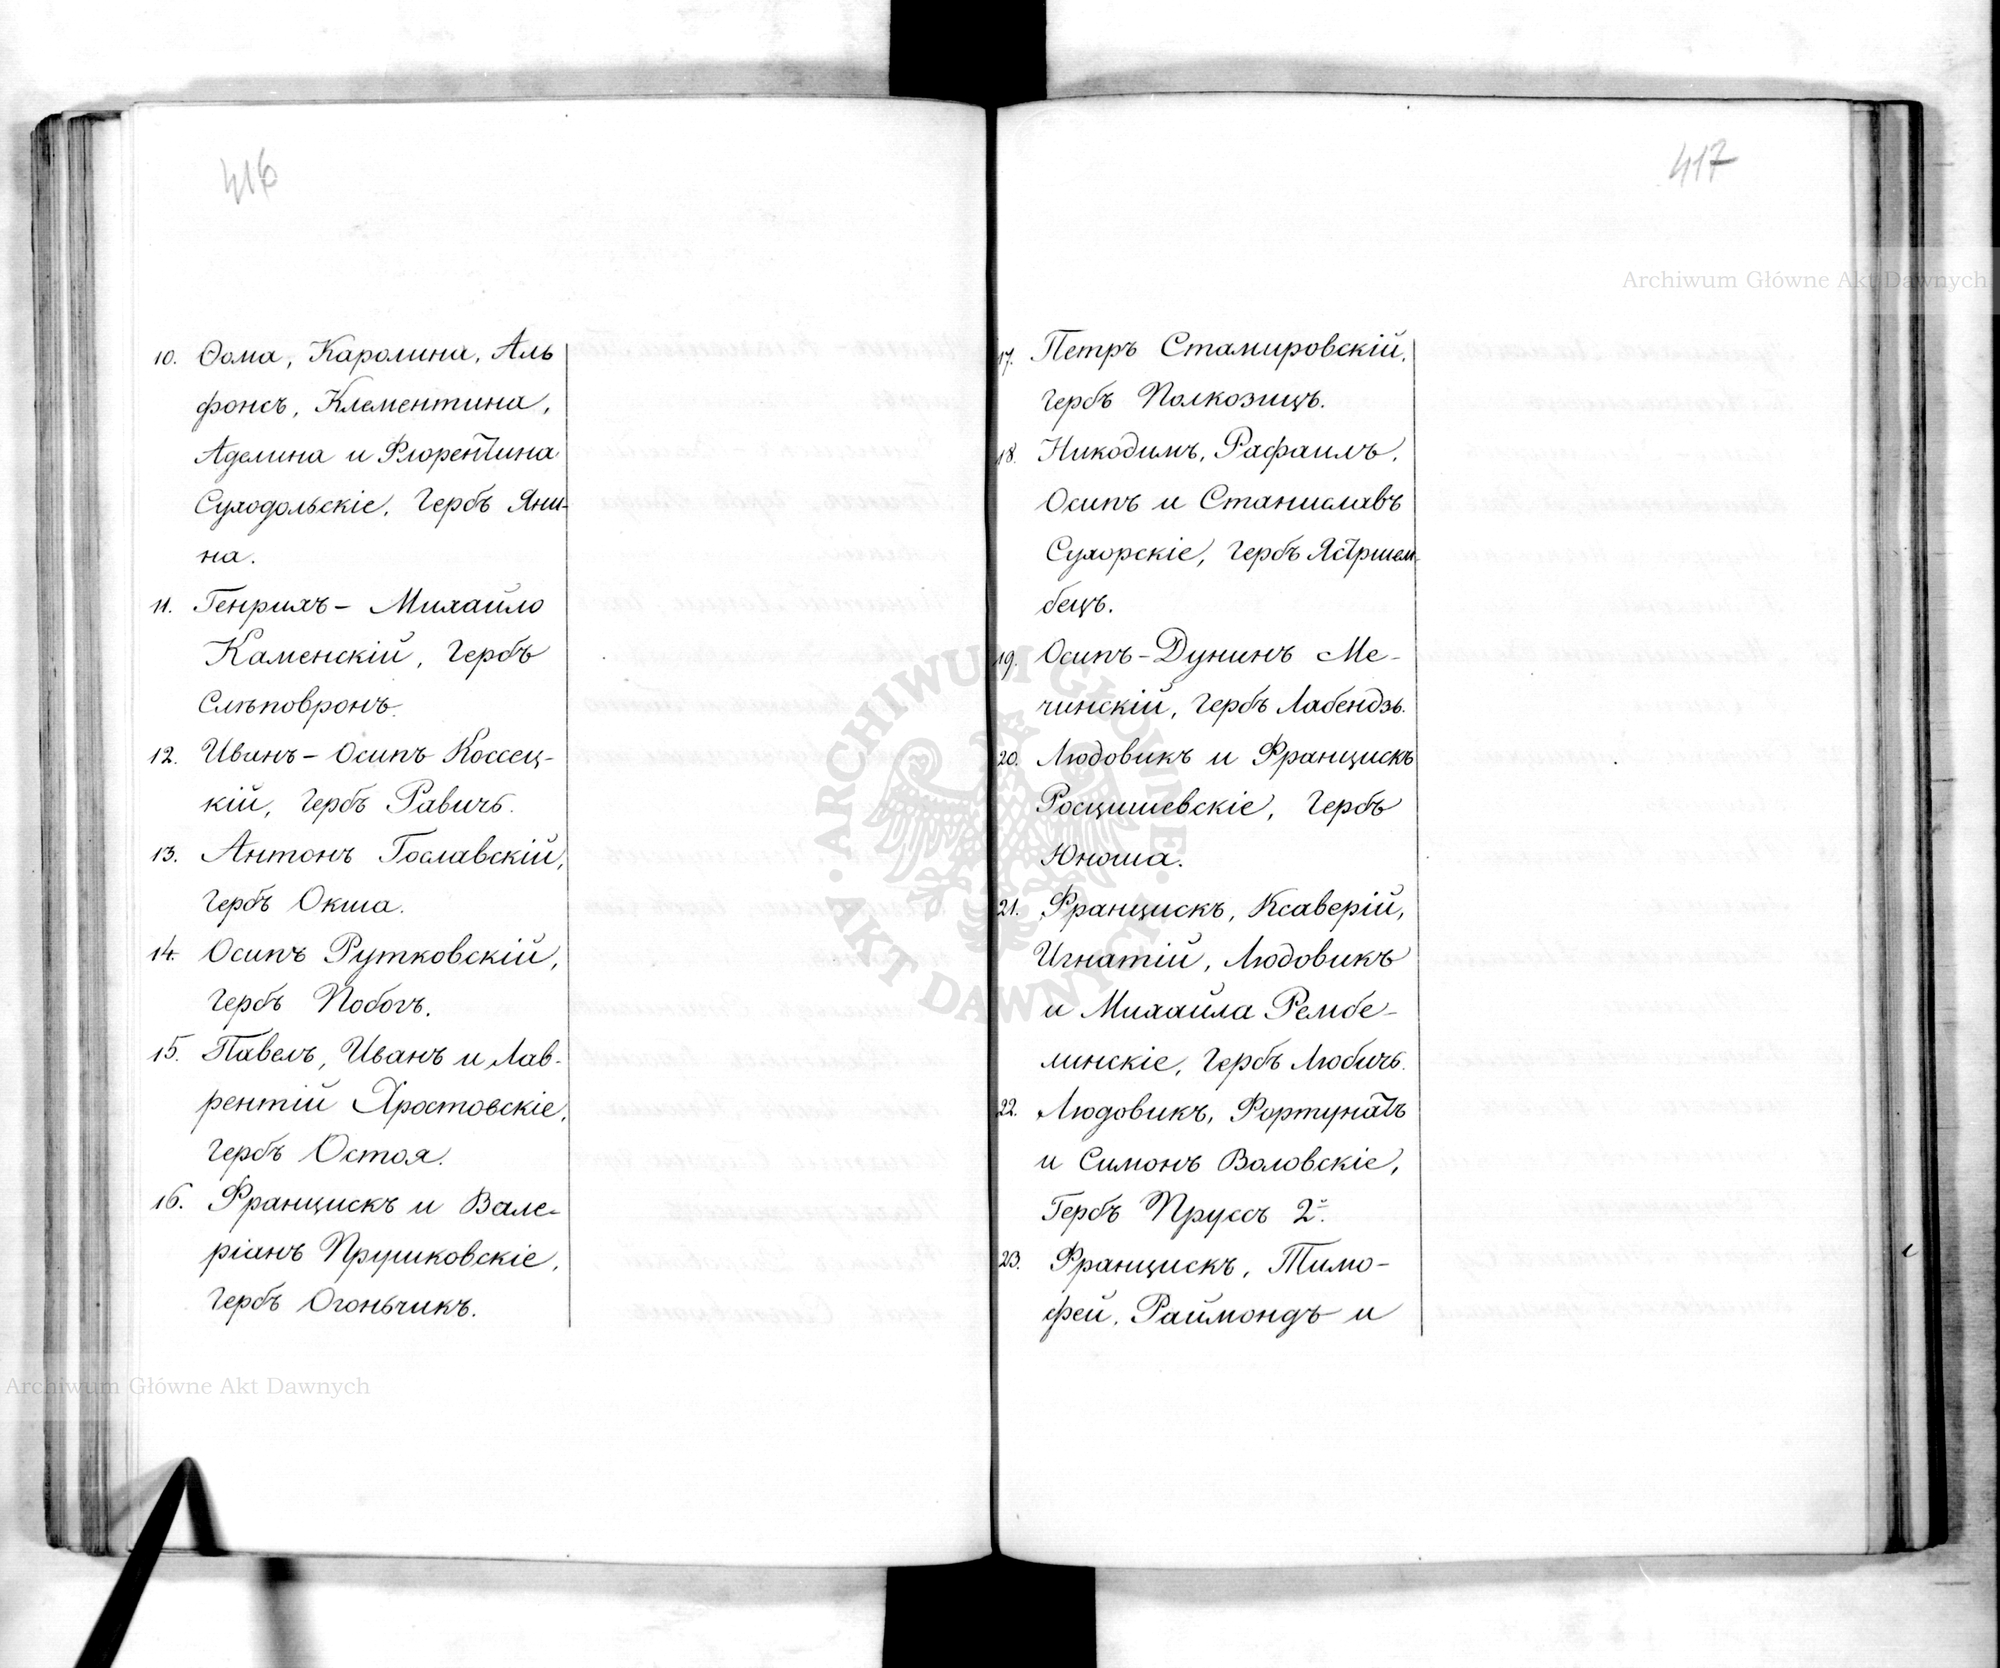 416
10. Ѳома, Каролина, Аль
фонсъ, Клементина,
Аделина и Флорентина
Суходольскіе, гербъ Яни-
на.
11. Генрихъ - Михайло
Каменскій, гербъ
Слѣповронъ.
12. Иванъ - Осипъ Коссец-
кій, гербъ Равичъ.
13. Антонъ Гославскій,
гербъ Окша.
14. Осипъ Рутковскій,
гербъ Побогъ.
15. Павелъ, Иванъ и Лав-
рентій Хростовскіе,
гербъ Остоя.
16. Францискъ и Вале-
ріанъ Прушковскіе,
гербъ Огоньчикъ.
Archiwum Główne Akt Dawnych
417
Archiwum Główne Akt Dawnych
17. Петръ Стамировскій,
гербъ Полкозицъ.
18. Никодимъ, Рафаилъ,
Осипъ и Станиславъ
Сухорскіе, гербъ Ястршем-
бецъ.
19. Осипъ-Дунинъ Ме-
чинскій, гербъ Лабендзь.
20. Людовикъ и Францискъ
Росцишевскіе, гербъ
Юноша.
21. Францискъ, Ксаверій,
Игнатій, Людовикъ
и Михаила Рембе-
линскіе, гербъ Любичъ.
22. Людовикъ, Фортунатъ
и Симонъ Воловскіе,
Гербъ Пруссъ 2й.
23. Францискъ, Тимо-
фей, Раймондъ и
ARCHIWUM GŁÓWNE
AKT DAWNYCH